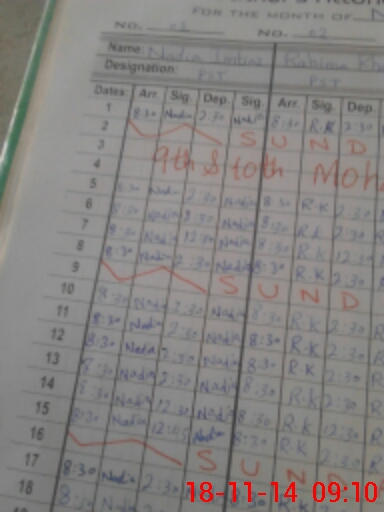 FOR THE MONTH OF
NO. 01 NO. 02
Name: Nadia Rahima
Designation: PST PST
Dates: Arr. Sig. Dep. Sig. Arr. Sig. Dep.
1 8:30 Nadia 2:30 Nadia 8:30 R.K 2:30
2 S U N D
3 9th & 10th Moh
4
5 8:30 Nadia 2:30 Nadia 8:30 R.K 2:30
6 8:30 Nadia 2:30 Nadia 8:30 R.K 2:30
7 8:30 Nadia 12:30 Nadia 8:30 R.K 12:30
8 8:30 Nadia 2:30 Nadia 8:30 R.K 2:30
9 S U N D
10 8:30 Nadia 2:30 Nadia 8:30 R.K 2:30
11 8:30 Nadia 2:30 Nadia 8:30 R.K 2:30
12 8:30 Nadia 2:30 Nadia 8:30 R.K 2:30
13 8:30 Nadia 2:30 Nadia 8:30 R.K 2:30
14 8:30 Nadia 12:30 Nadia 8:30 R.K
15 8:30 Nadia 12:05 Nadia 8:30 R.K
16 S U N D
17 8:30 Nadia 2:30
18 8:30
18-11-14 09:10